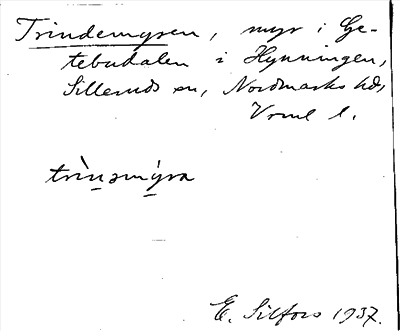 Trindemyren, myr i Ge-
tebudalen i Hynningen,
Silleruds sn, Nordmarks hd,
Vrml l.
trìnəmy̆ra
E. Silfors 1937.